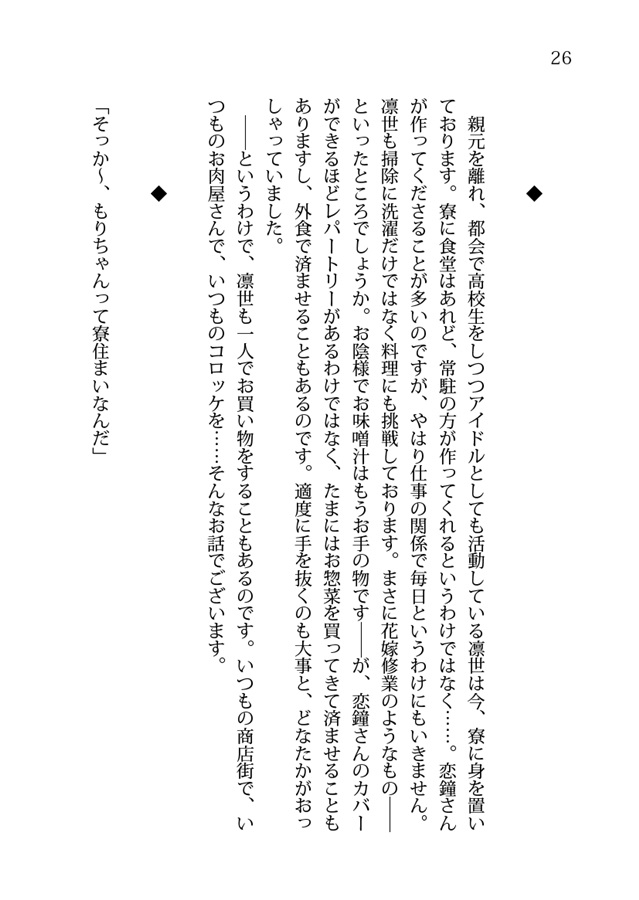 26
◆
親元を離れ、都会で高校生をしつつアイドルとしても活動している凛世は今、寮に身を置い
ております。寮に食堂はあれど、常駐の方が作ってくれるというわけではなく……。恋鐘さん
が作ってくださることが多いのですが、やはり仕事の関係で毎日というわけにもいきません。
凛世も掃除に洗濯だけではなく料理にも挑戦しております。まさに花嫁修業のようなもの――
といったところでしょうか。お陰様でお味噌汁はもうお手の物です――が、恋鐘さんのカバー
ができるほどレパートリーがあるわけではなく、たまにはお惣菜を買ってきて済ませることも
ありますし、外食で済ませることもあるのです。適度に手を抜くのも大事と、どなたかがおっ
しゃっていました。
――というわけで、凛世も一人でお買い物をすることもあるのです。いつもの商店街で、い
つものお肉屋さんで、いつものコロッケを……そんなお話でございます。
◆
「そっか〜、もりちゃんって寮住まいなんだ」